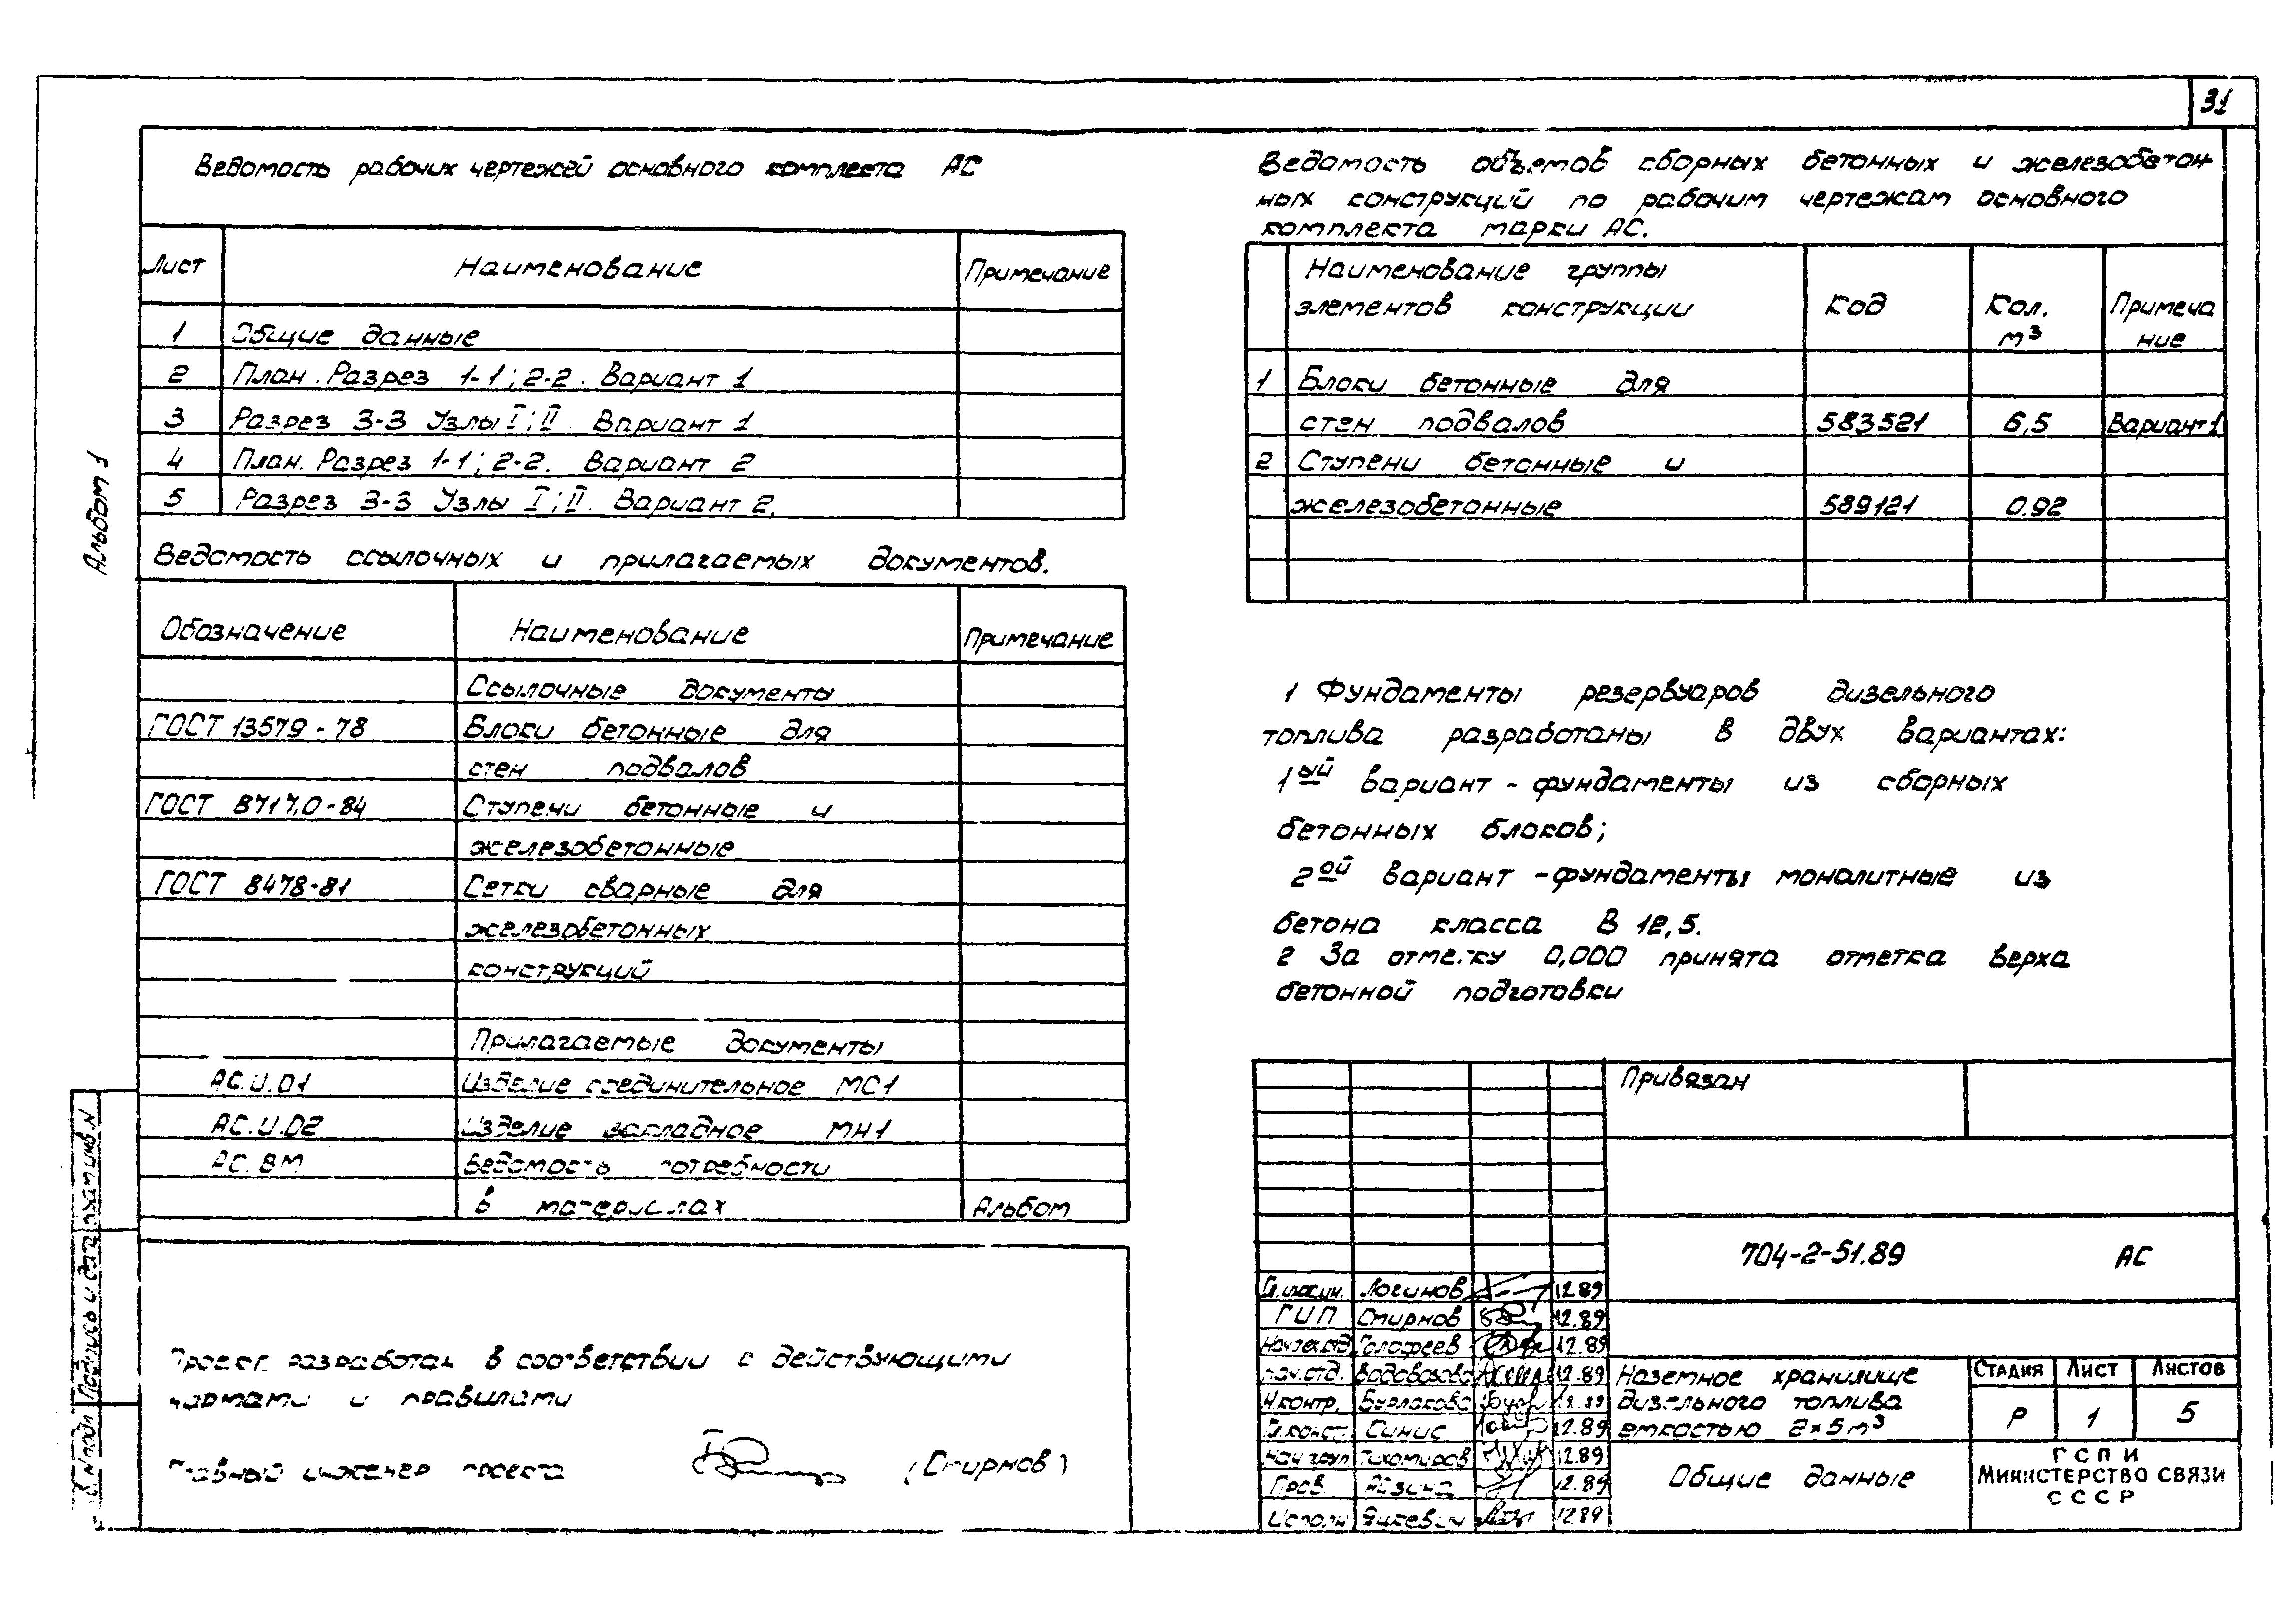 31
Ведомость рабочих чертежей основного комплекта АС
Лист Наименование Примечание
1 Общие данные
2 План. Разрез 1-1; 2-2. Вариант 1
3 Разрез 3-3 Узлы I; II. Вариант 1
4 План. Разрез 1-1; 2-2. Вариант 2
5 Разрез 3-3 Узлы I; II. Вариант 2.
Альбом 1
Ведомость ссылочных и прилагаемых документов.
Обозначение Наименование Примечание
Ссылочные документы
ГОСТ 13579-78 Блоки бетонные для
стен подвалов
ГОСТ 8717.0-84 Ступени бетонные и
железобетонные
ГОСТ 8478-81 Сетки сварные для
железобетонных
конструкций
Прилагаемые документы
АС.И.01 Изделие соединительное МС1
АС.И.02 Изделие закладное МН1
АС.ВМ Ведомость потребности
в материалах Альбом
Проект разработан в соответствии с действующими
нормами и правилами
Главный инженер проекта (Смирнов)
Ведомость объемов сборных бетонных и железобетон
ных конструкций по рабочим чертежам основного
комплекта марки АС.
Наименование группы
элементов конструкции Код Кол. Примеча
м³ ние
1 Блоки бетонные для
стен подвалов 583521 6,5 Вариант 1
2 Ступени бетонные и
железобетонные 589121 0.92
1 Фундаменты резервуаров дизельного
топлива разработаны в двух вариантах:
1ый вариант - фундаменты из сборных
бетонных блоков;
2ой вариант - фундаменты монолитные из
бетона класса В 12,5.
2 За отметку 0,000 принята отметка верха
бетонной подготовки
Привязан
704-2-51.89 АС
Гл.инжин. Логинов 12.89
ГИП Смирнов 12.89
Нач.тех.отд Голофеев 12.89
Нач.отд. Водовозова 12.89
Н.контр. Бурлакова 12.89
Гл.констр. Синис 12.89
Нач груп Тихомиров 12.89
Пров. 12.89
Исполн Яцкевич 12.89
Наземное хранилище
дизельного топлива
емкостью 2×5м³
Стадия Лист Листов
Р 1 5
Общие данные
ГСПИ
Министерство связи
СССР
Взам инв N
Подпись и дата
N подл